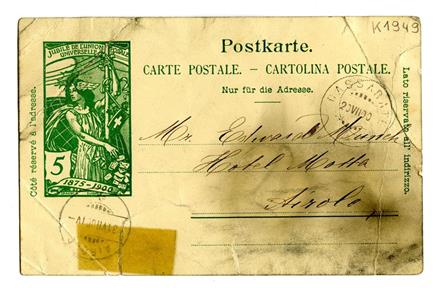 K1949
JUBILÉ DE L'UNION
UNIVERSELLE
Postkarte.
CARTE POSTALE. – CARTOLINA POSTALE.
Nur für die Adresse.
Côté réservé à l'adresse.
Lato riservato all' indirizzo.
5
1875–1900
Mr. Edward
Hotel Motta
Airolo